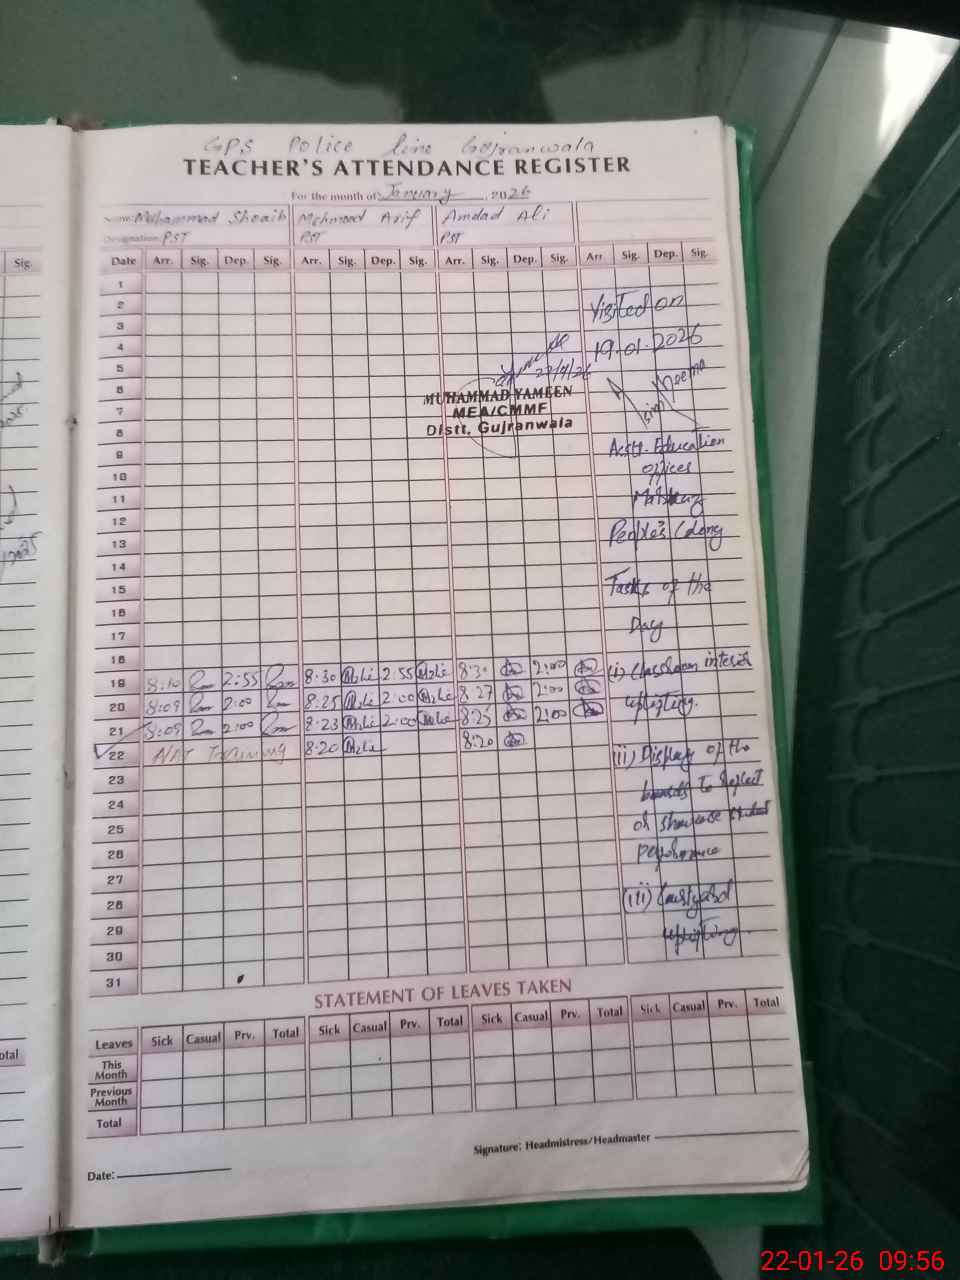 GPS Police line Gojranwala
TEACHER'S ATTENDANCE REGISTER
For the month of January, 2026
Name: Mohammad Shoaib Mehmood Arif Amdad Ali
Designation: PST PST PST
Sig. Date Arr. Sig. Dep. Sig. Arr. Sig. Dep. Sig. Arr. Sig. Dep. Sig. Arr Sig. Dep. Sig.
1
2 Visited on
3
4 19.01.2026
5
6
MUHAMMAD YAMEEN
7
MEA/CMMF
8
Distt. Gujranwala
9 Asstt. Education
10 offices
11
12
13 People's Colony
14
15 Tasks of the
16
17 Day
18
19 8:10 2:55 8:30 2:55 8:30 2:00 (i) Classroom interior
20 8:09 2:00 8:25 2:00 8:27 2:00 uplifting.
21 8:09 2:00 8:23 2:00 8:25 2:00
22 Training 8:20 8:20 (ii) Display of the
23
24 boards to reflect
25 or showcase student
26 performance
27
28 (iii) Courtyard
29 uplifting.
30
31
STATEMENT OF LEAVES TAKEN
Leaves Sick Casual Prv. Total Sick Casual Prv. Total Sick Casual Prv. Total Sick Casual Prv. Total
This Month
Previous Month
Total
Signature: Headmistress/Headmaster
Date:
22-01-26 09:56